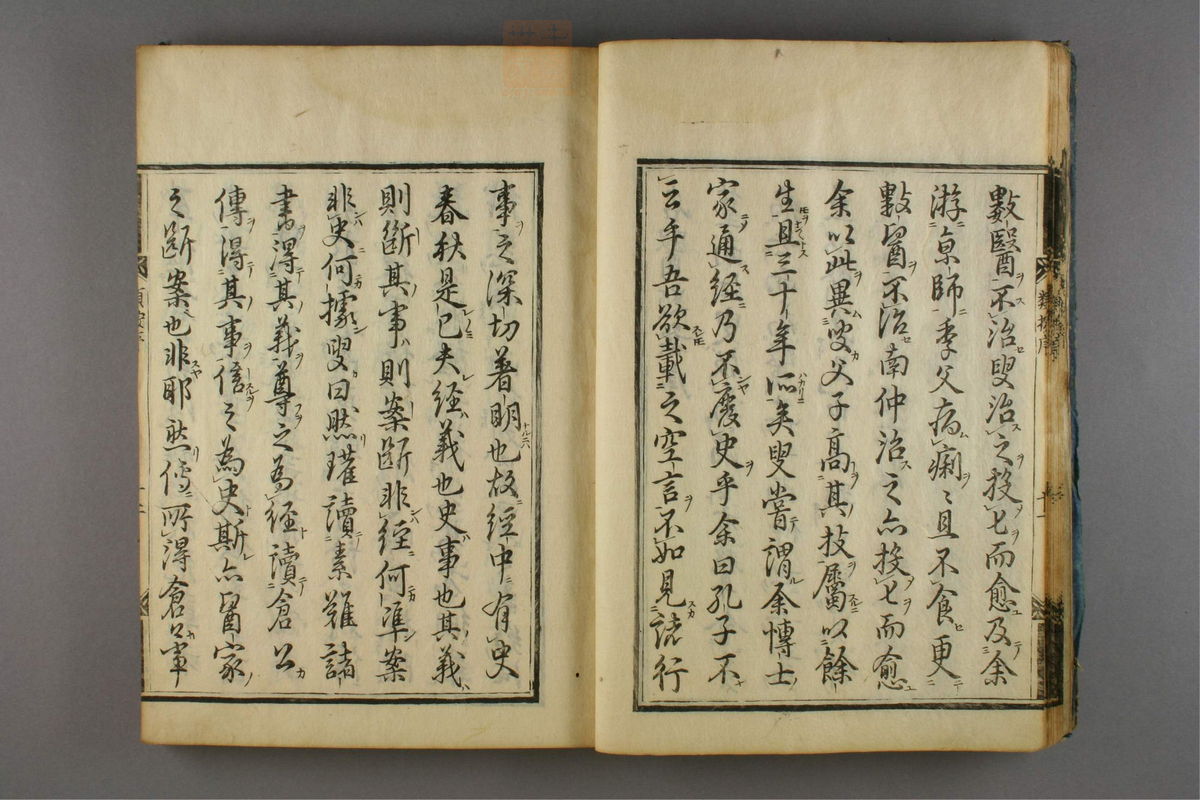 數醫不治叟治之投匕而愈及余
游京師季父病痢〻且不食更
數醫不治南仲治之亦投匕而愈
余以此異叟父子高其技屬以餘
生且三十年所矣叟嘗謂余慱士
家通經乃不廢史乎余曰孔子不
云乎吾欲載之空言不如見諸行
事之深切著明也故經中有史
春秋是已夫經義也史事也其義
則斷其事則案斷非經何準案
非史何據叟曰然瓘讀素難諸
書得其義尊之為經讀倉公
傳得其事信之為史斯亦醫家
之斷案也非耶然傳所得倉公事